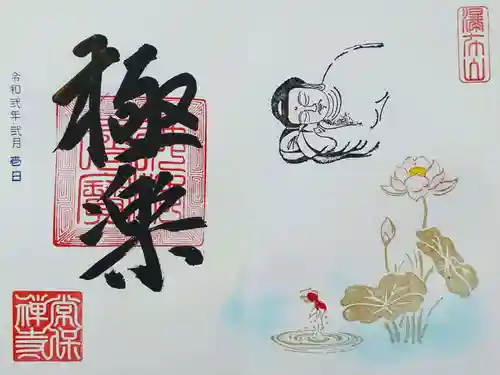 瀑布山
極楽
令和弐年弐月壱日
常保
禅寺